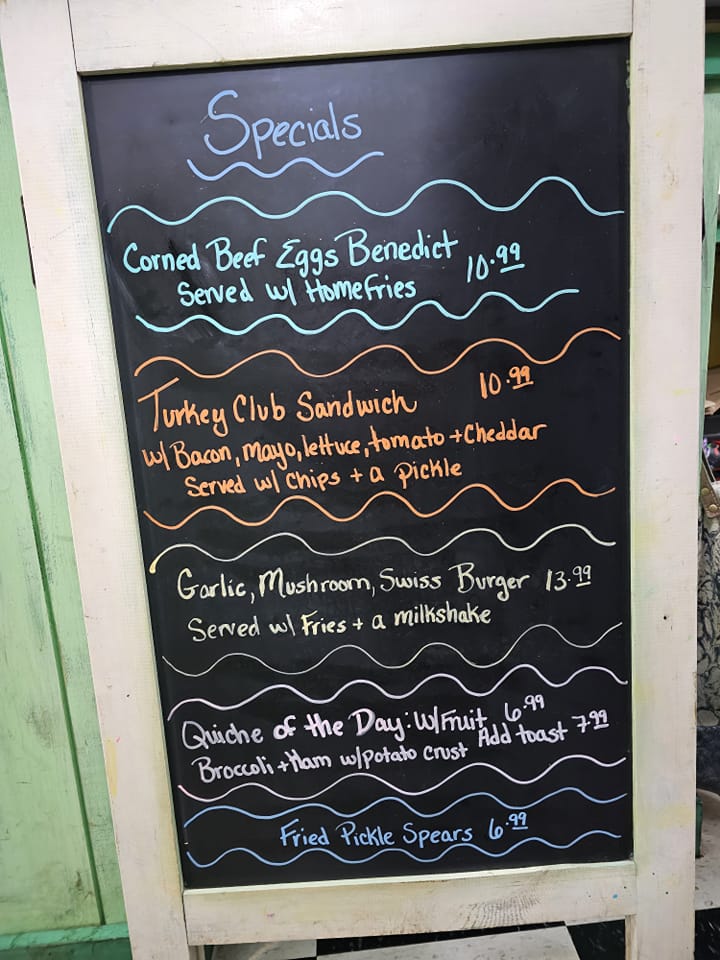 Specials
Corned Beef Eggs Benedict 10.99
Served w/ Homefries
Turkey Club Sandwich 10.99
w/ Bacon, Mayo, lettuce, tomato + Cheddar
Served w/ Chips + a pickle
Garlic, Mushroom, Swiss Burger 13.99
Served w/ Fries + a milkshake
Quiche of the Day: W/Fruit 6.99
Broccoli + Ham w/potato crust Add toast 7.99
Fried Pickle Spears 6.99